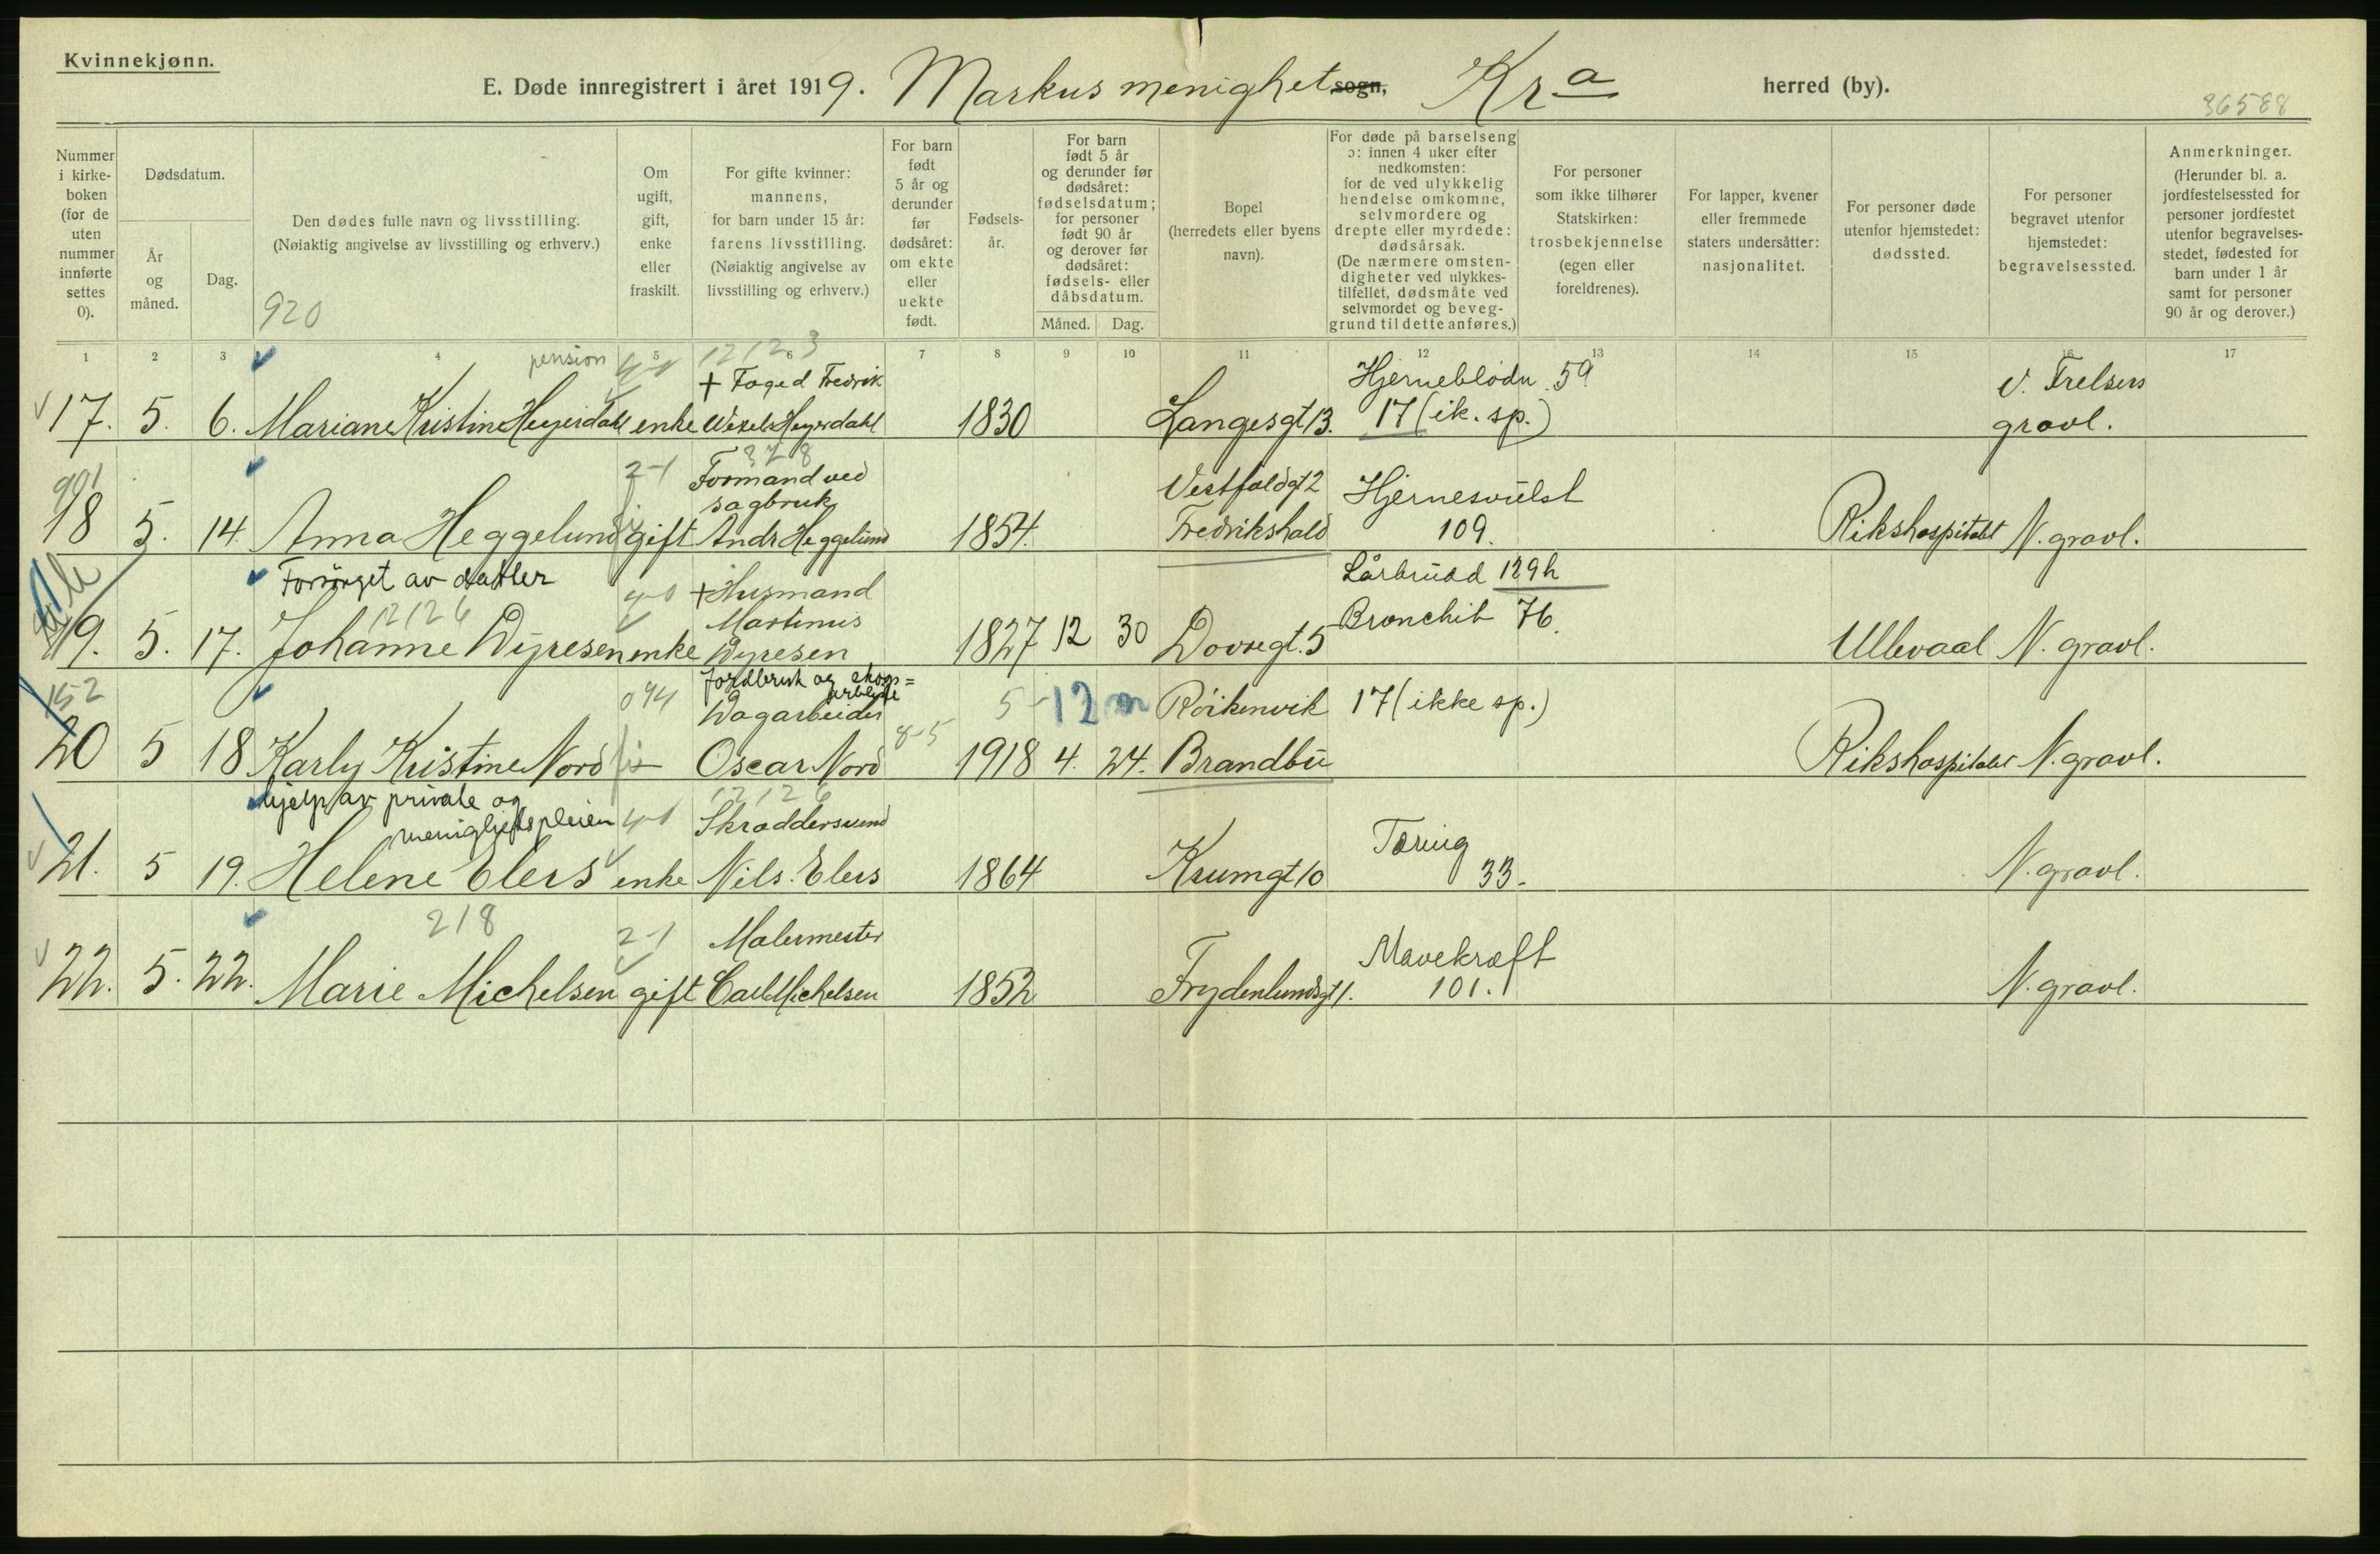 Kvinnekjønn.
E. Døde innregistrert i året 1919. Markus menighet sogn, Kra herred (by).
36588
Nummer i kirke-boken (for de uten nummer innførte settes 0).
Dødsdatum.
År og måned.
Dag.
Den dødes fulle navn og livsstilling.
(Nøiaktig angivelse av livsstilling og erhverv.)
920
Om ugift, gift, enke eller fraskilt.
For gifte kvinner: mannens, for barn under 15 år: farens livsstilling. (Nøiaktig angivelse av livsstilling og erhverv.)
For barn født 5 år og derunder før dødsåret: om ekte eller uekte født.
Fødsels-år.
For barn født 5 år og derunder før dødsåret: fødselsdatum; for personer født 90 år og derover før dødsåret: fødsels- eller dåbsdatum.
Måned.
Dag.
Bopel (herredets eller byens navn).
For døde på barselseng ɔ: innen 4 uker efter nedkomsten: for de ved ulykkelig hendelse omkomne, selvmordere og drepte eller myrdede: dødsårsak. (De nærmere omsten-digheter ved ulykkes-tilfellet, dødsmåte ved selvmordet og beveg-grund til dette anføres.)
For personer som ikke tilhører Statskirken: trosbekjennelse (egen eller foreldrenes).
For lapper, kvener eller fremmede staters undersåtter: nasjonalitet.
For personer døde utenfor hjemstedet: dødssted.
For personer begravet utenfor hjemstedet: begravelsessted.
Anmerkninger. (Herunder bl. a. jordfestelsessted for personer jordfestet utenfor begravelses-stedet, fødested for barn under 1 år samt for personer 90 år og derover.)
1 2 3 4 5 6 7 8 9 10 11 12 13 14 15 16 17
pension 4-1 12123
+ Foged Fredrik
Hjerneblødn. 59
V. Frelsers
17. 5. 6. Mariane Kristine Heyerdahl enke Wexels Heyerdahl 1830 Langesgt 13. 17 (ik. sp.) gravl.
901 2-1 328
Formand ved sagbruk
Vestfoldgt 2
Hjernesvulst
18 5. 14. Anna Heggelund gift Andr Heggelund 1854. Fredrikshald 109. Rikshospitalet N. gravl.
Forsørget av datter
12126
4-0 + Husmand
Lårbrudd 129h
Martinus
Bronchit 76.
19. 5. 17. Johanne Wyresen enke Wyresen 1827 12 30 Dovregt. 5 Ullevaal N. gravl.
152 044
Jordbruk og skogs=
arbeide
Dagarbeider
8-5
5-12 m
Röikenvik
17 (ikke sp.)
20 5 18 Karly Kristine Nord Oscar Nord 1918 4. 24. Brandbu Rikshospitalet N. gravl.
hjelp av private og
menighetspleien
4-1 12126
Skræddersvend
Tæring
21. 5 19. Helene Elers enke Nils Elers 1864 Krumgt 10 33. N. gravl.
218
2-1 Malermester
Mavekræft
22. 5. 22. Marie Michelsen gift Carl Michelsen 1852 Frydenlundsgt 1. 101. N. gravl.